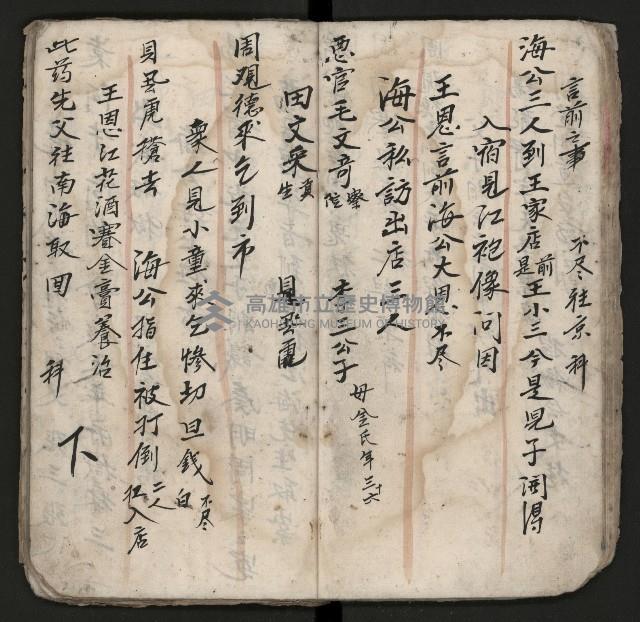 言前之事　不尽　往京　科
海公三人到王家店 前是 王小三今是兒子 開得
入宿見江袍像问因
王恩言前海公大恩 不尽
海公私訪出店 三人
悪官毛文奇 李三公子 母金氏年三十六
田文采 見虎
周觀德來乞到市
衆人見小童來乞惨切旦錢 白 不尽
見虎搶去 海公指住被打倒 二人扛入店
王恩江花酒賽金膏養治
此药先父往南海取回 科
下
高雄市立歷史博物館
KAOHSIUNG MUSEUM OF HISTORY